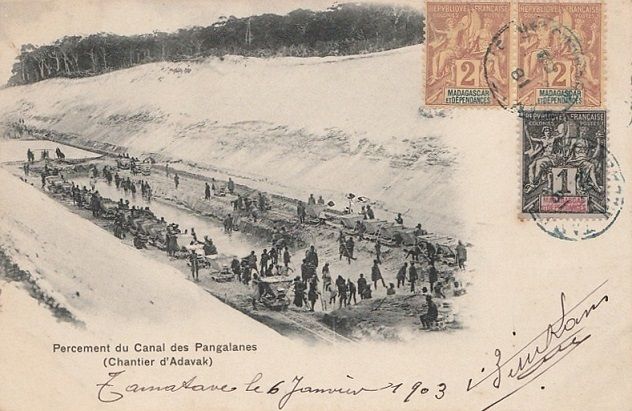 RÉPUBLIQUE FRANÇAISE
2
MADAGASCAR
ET DÉPENDANCES
2
MADAGASCAR
ET DÉPENDANCES
RÉPUBLIQUE FRANÇAISE
1
Percement du Canal des Pangalanes
(Chantier d'Adavak)
Tamatave le 6 Janvier 1903